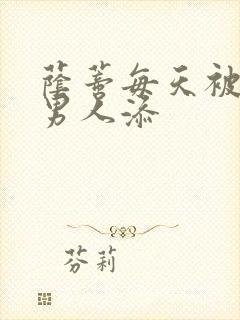 蔭蒂每天被
男人添
芬莉